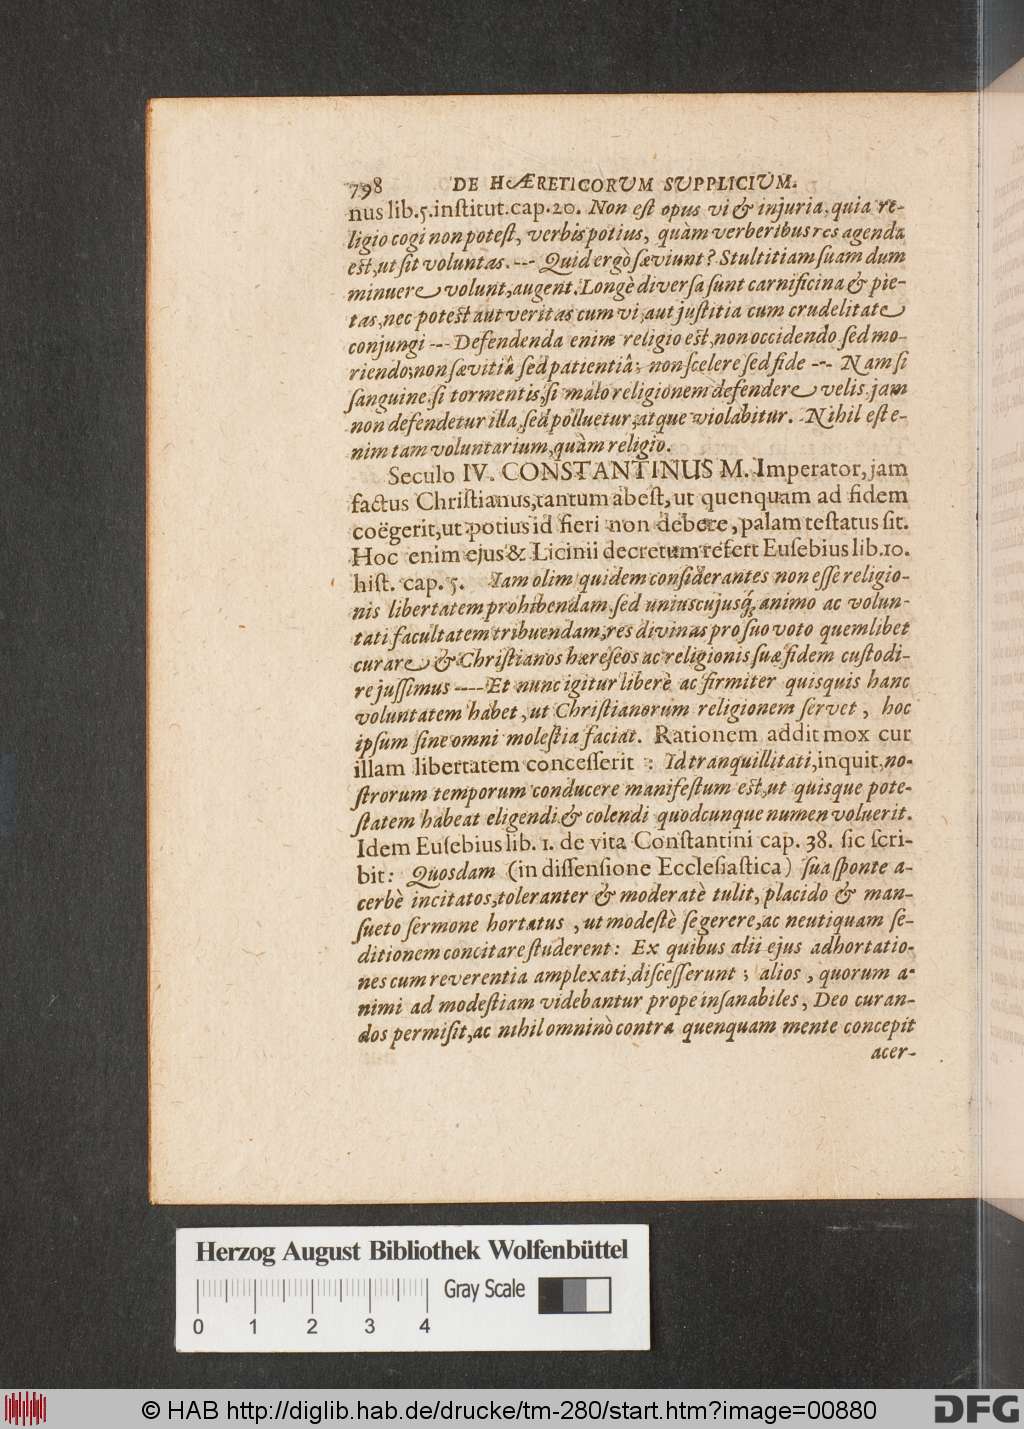 798 DE HÆRETICORUM SUPPLICIUM.
nus lib.5.institut.cap.20. Non est opus vi & injuria, quia re-
ligio cogi non potest, verbis potius, quàm verberibus res agenda
est, ut sit voluntas. --- Quid ergò sæviunt? Stultitiam suam dum
minuere volunt, augent. Longè diversa sunt carnificina & pie-
tas, nec potest aut veritas cum vi, aut justitia cum crudelitate
conjungi --- Defendenda enim religio est, non occidendo sed mo-
riendo; non sævitiâ sed patientiâ; non scelere sed fide --- Nam si
sanguine, si tormentis, si malo religionem defendere velis, jam
non defendetur illa, sed polluetur, atque violabitur. Nihil est e-
nim tam voluntarium, quàm religio.
Seculo IV. CONSTANTINUS M. Imperator, jam
factus Christianus, tantum abest, ut quenquam ad fidem
coëgerit, ut potius id fieri non debere, palam testatus sit.
Hoc enim ejus & Licinii decretum refert Eusebius lib.10.
hist. cap. 5. Iam olim quidem considerantes non esse religio-
nis libertatem prohibendam, sed uniuscujusq́; animo ac volun-
tati facultatem tribuendam, res divinas pro suo voto quemlibet
curare & Christianos hæreseos ac religionis suæ fidem custodi-
re jussimus ---- Et nunc igitur liberè ac firmiter quisquis hanc
voluntatem habet, ut Christianorum religionem servet, hoc
ipsum sine omni molestia faciat. Rationem addit mox cur
illam libertatem concesserit : Id tranquillitati, inquit, no-
strorum temporum conducere manifestum est, ut quisque pote-
statem habeat eligendi & colendi quodcunque numen voluerit.
Idem Eusebius lib. 1. de vita Constantini cap. 38. sic scri-
bit: Quosdam (in dissensione Ecclesiastica) sua sponte a-
cerbè incitatos, toleranter & moderatè tulit, placido & man-
sueto sermone hortatus , ut modestè se gerere, ac neutiquam se-
ditionem concitare studerent: Ex quibus alii ejus adhortatio-
nes cum reverentia amplexati, discesserunt ; alios , quorum a-
nimi ad modestiam videbantur prope insanabiles, Deo curan-
dos permisit, ac nihil omninò contra quenquam mente concepit
acer-
Herzog August Bibliothek Wolfenbüttel
Gray Scale
0 1 2 3 4
© HAB http://diglib.hab.de/drucke/tm-280/start.htm?image=00880
DFG